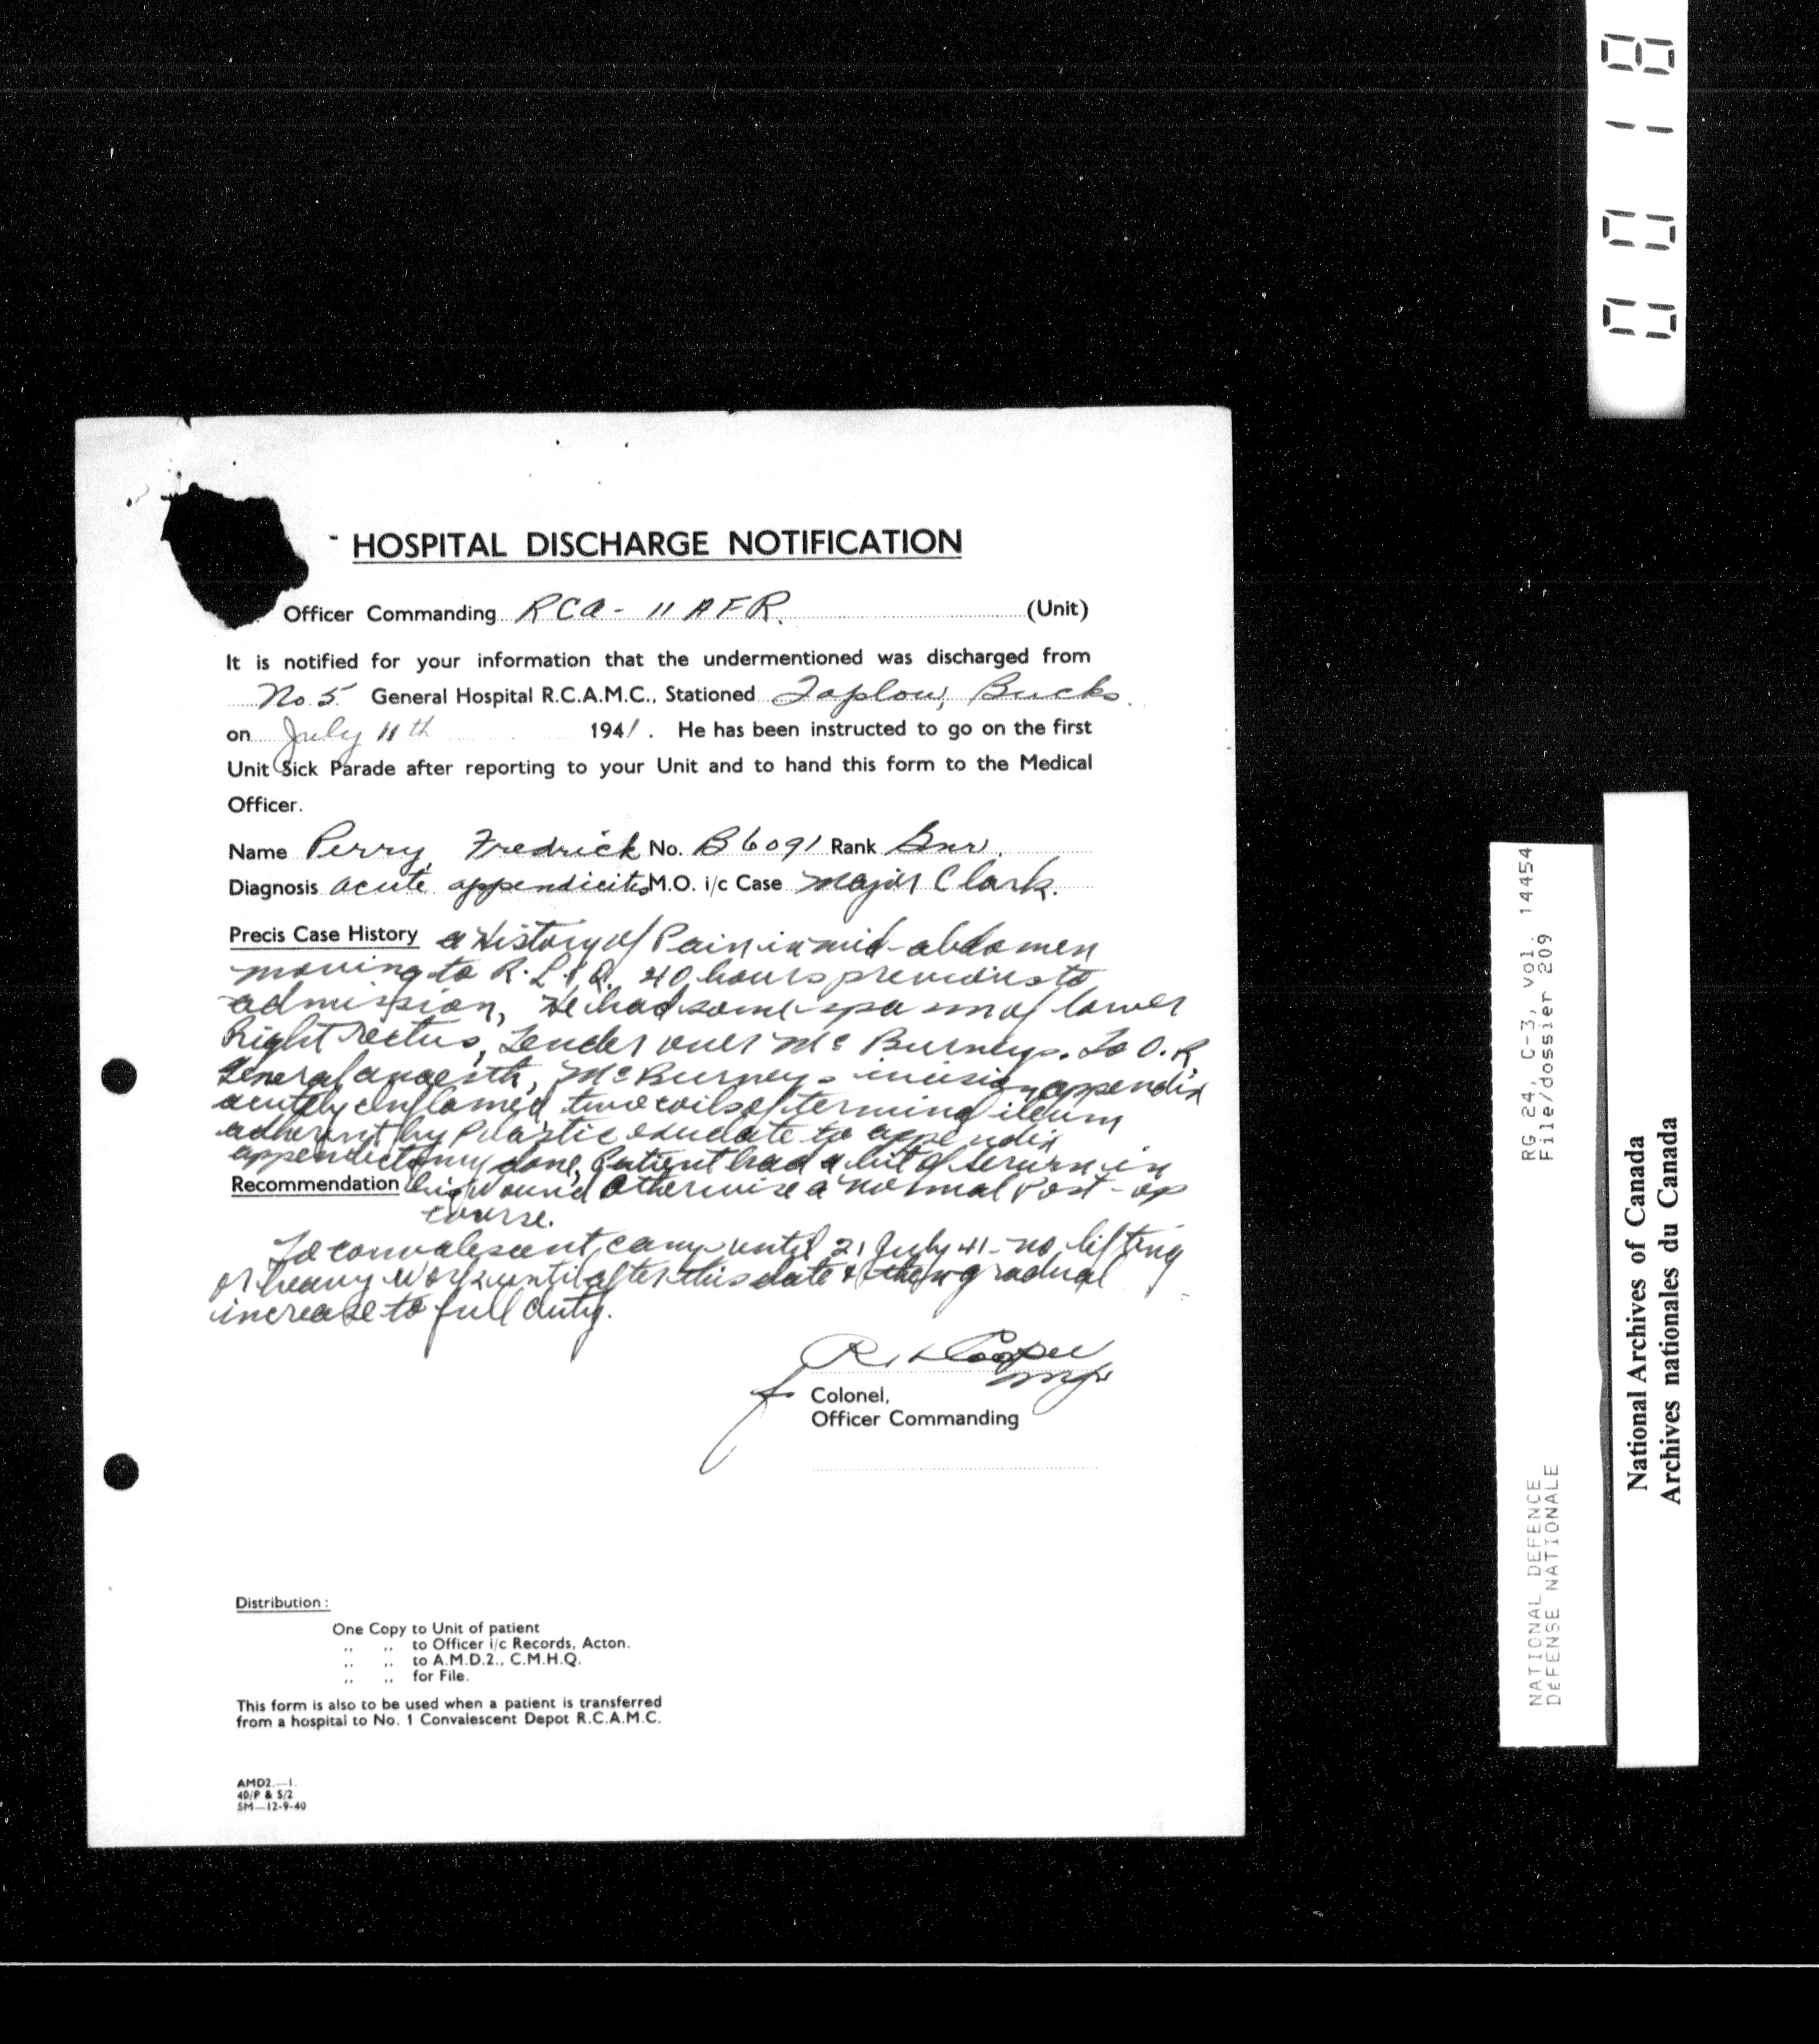 HOSPITAL DISCHARGE NOTIFICATION
Officer Commanding RCA - 11 AFR. (Unit)
It is notified for your information that the undermentioned was discharged from
No. 5. General Hospital R.C.A.M.C., Stationed Taplow, Bucks.
on July 11th 1941. He has been instructed to go on the first
Unit Sick Parade after reporting to your Unit and to hand this form to the Medical
Officer.
Name Perry, Fredrick No. B6091 Rank Gnr.
Diagnosis acute appendicitis M.O. i/c Case Major Clark.
Precis Case History a History of Pain in mid-abdomen
moving to R.L.Q. 40 hours previous to
admission, He had some spasm of lower
Right rectus, Tender over Mc Burneys. To O.R
General anaesth, McBurneys incision appendix
acutely inflamed, two coils of terminal ileum
adherent by Plastic exudate to appendix
appendectomy done, Patient had a bit of serum in
Recommendation his wound otherwise a normal Post-op
course.
To convalescent camp until 21 July 41 - no lifting
or heavy work until after this date & then gradual
increase to full duty.
R. Cooper
Maj
for Colonel,
Officer Commanding
Distribution :
One Copy to Unit of patient
,, ,, to Officer i/c Records, Acton.
,, ,, to A.M.D.2., C.M.H.Q.
,, ,, for File.
This form is also to be used when a patient is transferred
from a hospital to No. 1 Convalescent Depot R.C.A.M.C.
AMD2.—1.
40/P & S/2
5M—12-9-40
00118
RG 24, C-3, vol. 14454
File/dossier 209
NATIONAL DEFENCE
DÉFENSE NATIONALE
National Archives of Canada
Archives nationales du Canada